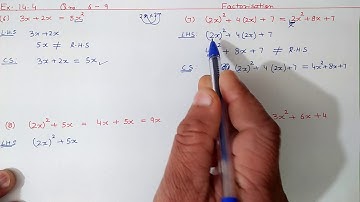 Ex: 14.4 Qno 6 - 9 Factorisation
(6) 3x + 2x = 5x²
LHS 3x + 2x
5x ≠ R.H.S
C.S. 3x + 2x = 5x ✓
(7) (2x)² + 4(2x) + 7 = 2x² + 8x + 7
LHS (2x)² + 4(2x) + 7
+ 8x + 7 ≠ R.H.S
C.S. (2x)² + 4(2x) + 7 = 4x² + 8x + 7
(8) (2x)² + 5x = 4x + 5x = 9x
LHS (2x)² + 5x
3x² + 6x + 4